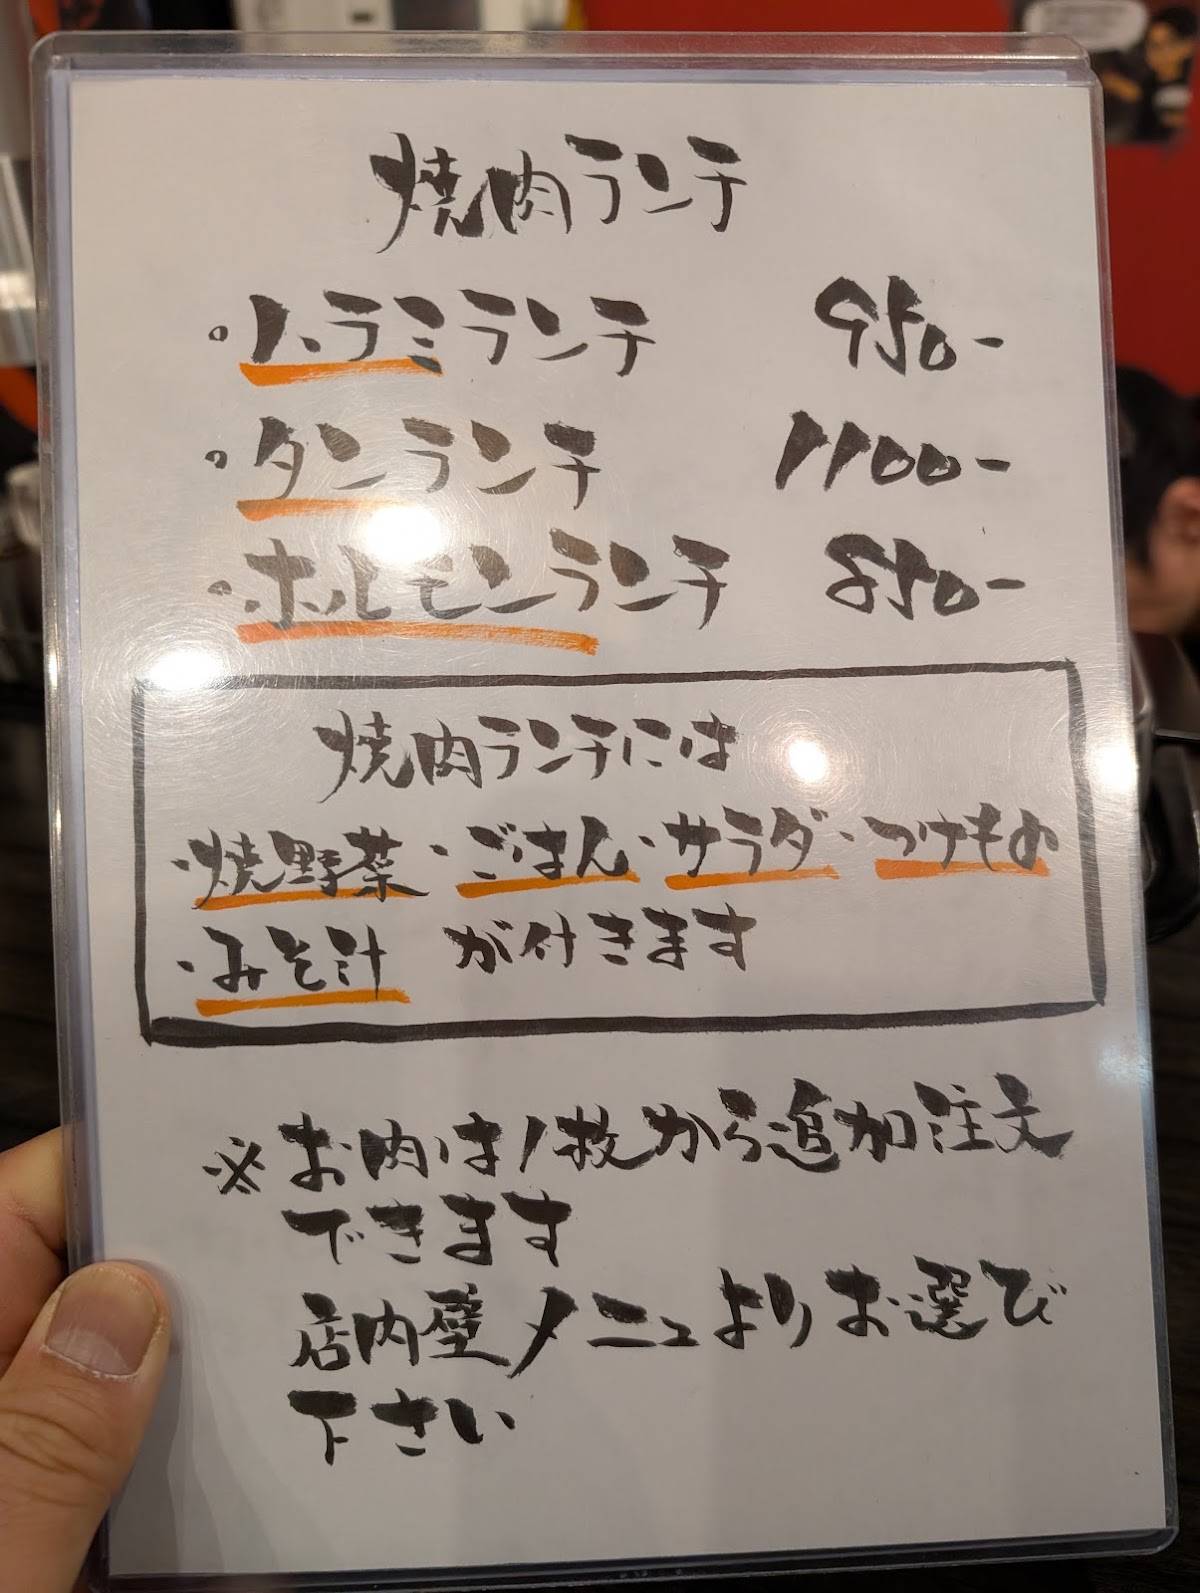 焼肉ランチ
。ハラミランチ 950-
。タンランチ 1100-
。ホルモンランチ 850-
焼肉ランチには
・焼野菜・ごはん・サラダ・つけもの
・みそ汁 が付きます
※お肉は1枚から追加注文
できます
店内壁メニューよりお選び
下さい